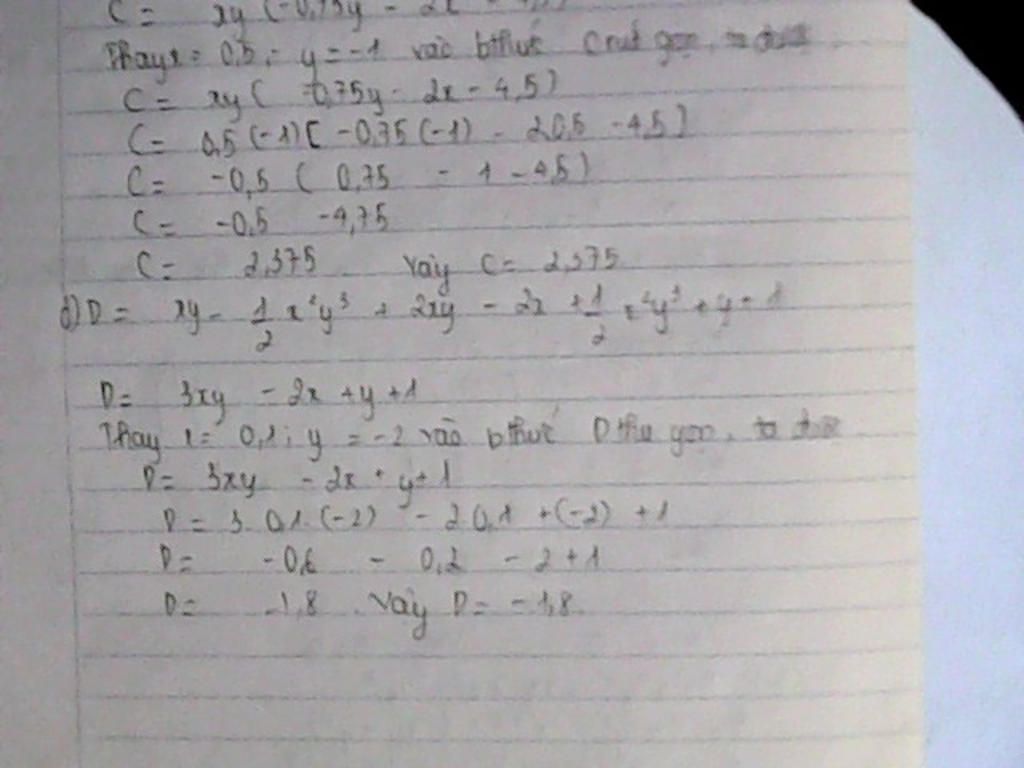 C = xy (-0,75y - 2x - 4,5)
Thay x = 0,5 ; y = -1 vào bthức C rút gọn, ta được
C = xy ( -0,75y - 2x - 4,5)
C = 0,5 (-1) [ -0,75 (-1) - 2.0,5 - 4,5 ]
C = -0,5 ( 0,75 - 1 - 4,5)
C = -0,5 -4,75
C = 2,375 Vậy C = 2,375
d) D = xy - 1/2 x²y³ + 2xy - 2x + 1/2 x²y³ + y + 1
D = 3xy - 2x + y + 1
Thay x = 0,1 ; y = -2 vào bthức D thu gọn, ta được
D = 3xy - 2x + y + 1
D = 3. 0,1. (-2) - 2 0,1 + (-2) + 1
D = -0,6 - 0,2 - 2 + 1
D = -1,8 . Vậy D = -1,8.